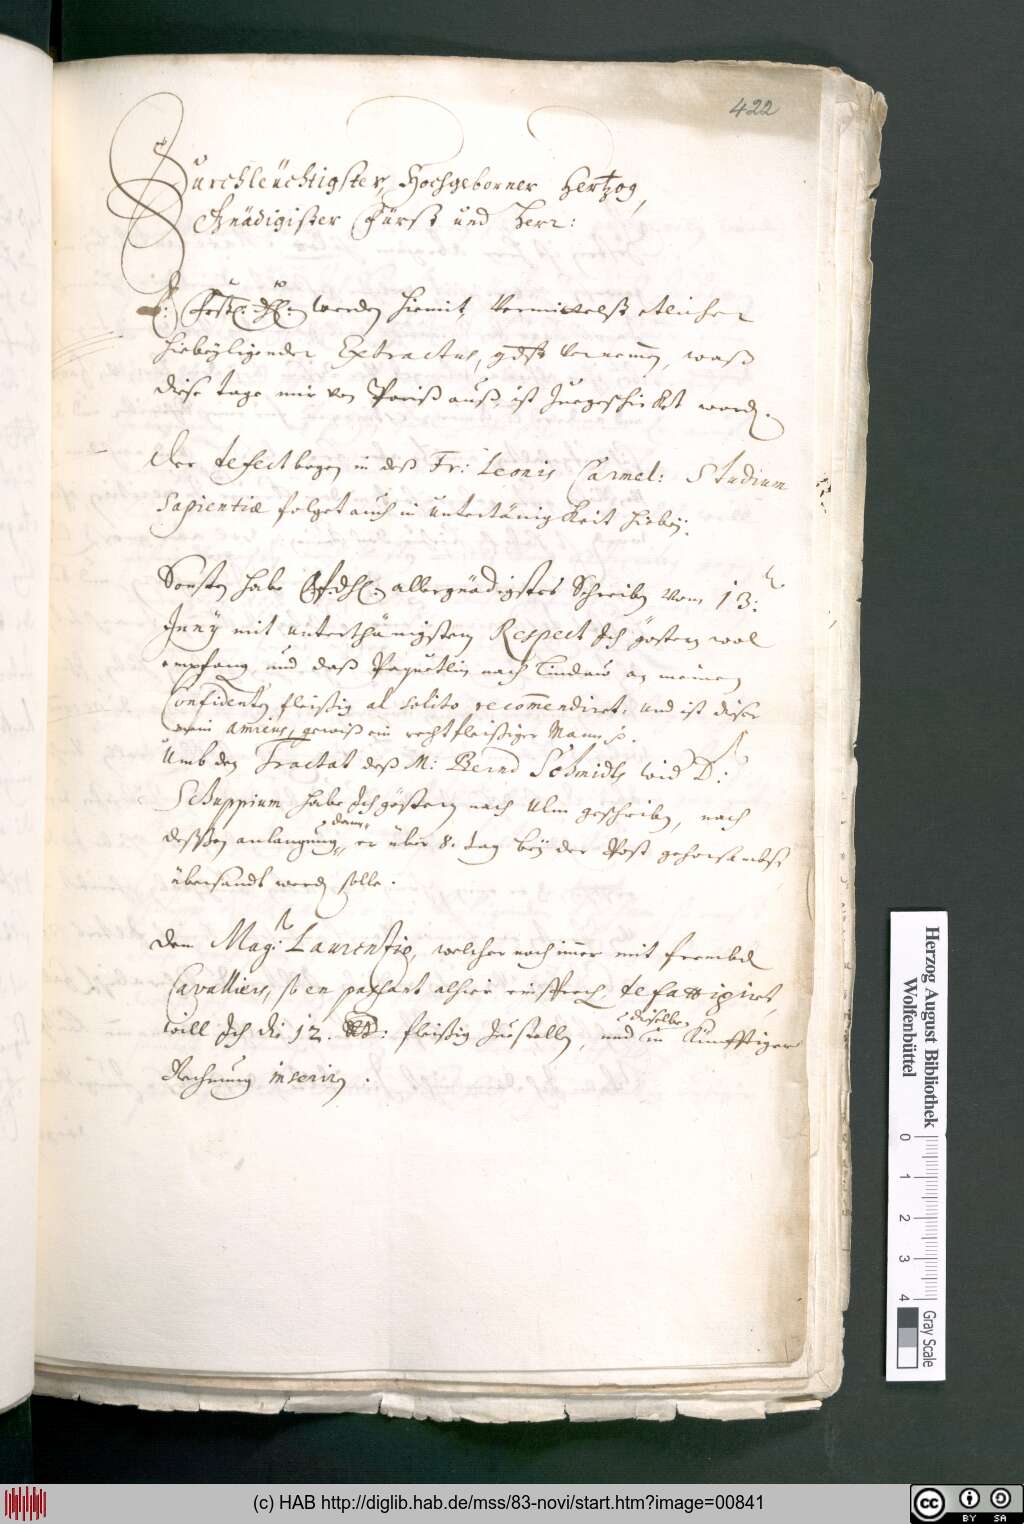 422
Durchleüchtigster, Hochgeborner Hertzog,
Gnädigister Fürst und Herr:
E: Frstl. Dhl. werden hiemit, Vermittelst etlicher
hiebeyligender Extracten, gdst vernemen, waß
dise tage mir von Pariß auß, ist zuegeschicket worden.
Der defectbogen in deß Fr: Leonis Carmel: Studium
Sapientiæ folget auch in untertänigkeit hiebey.
Sonsten habe E. f. dhl. allergnädigstes Schreiben vom 13:
Juny mit unterthänigstem Respect Ich gestern wol
empfangen, und daß Paquetlin nach Lindaw an meinen
Confidenten fleißig al solito recommendiret: und ist diser
mein amicus, gewiß ein recht fleißiger Mann.
Umb den Tractat deß M: Bernd Schmidts wid D:
Schuppium habe Ich gestern nach Ulm geschriben, nach
desßen anlangung, dann er über 8. tag bey der Post gehorsambst
übersandt werden solle.
Dem Mag: Laurentio, welcher noch immer mit frembden
Cavalliers, so en passant alhier einsprechen, defatigiret,
will Ich die 12. fleißig zustellen, und dieselbe in Künfftiger
Rechnung inseriren.
Herzog August Bibliothek
Wolfenbüttel
0 1 2 3 4
Gray Scale
(c) HAB http://diglib.hab.de/mss/83-novi/start.htm?image=00841
cc BY SA